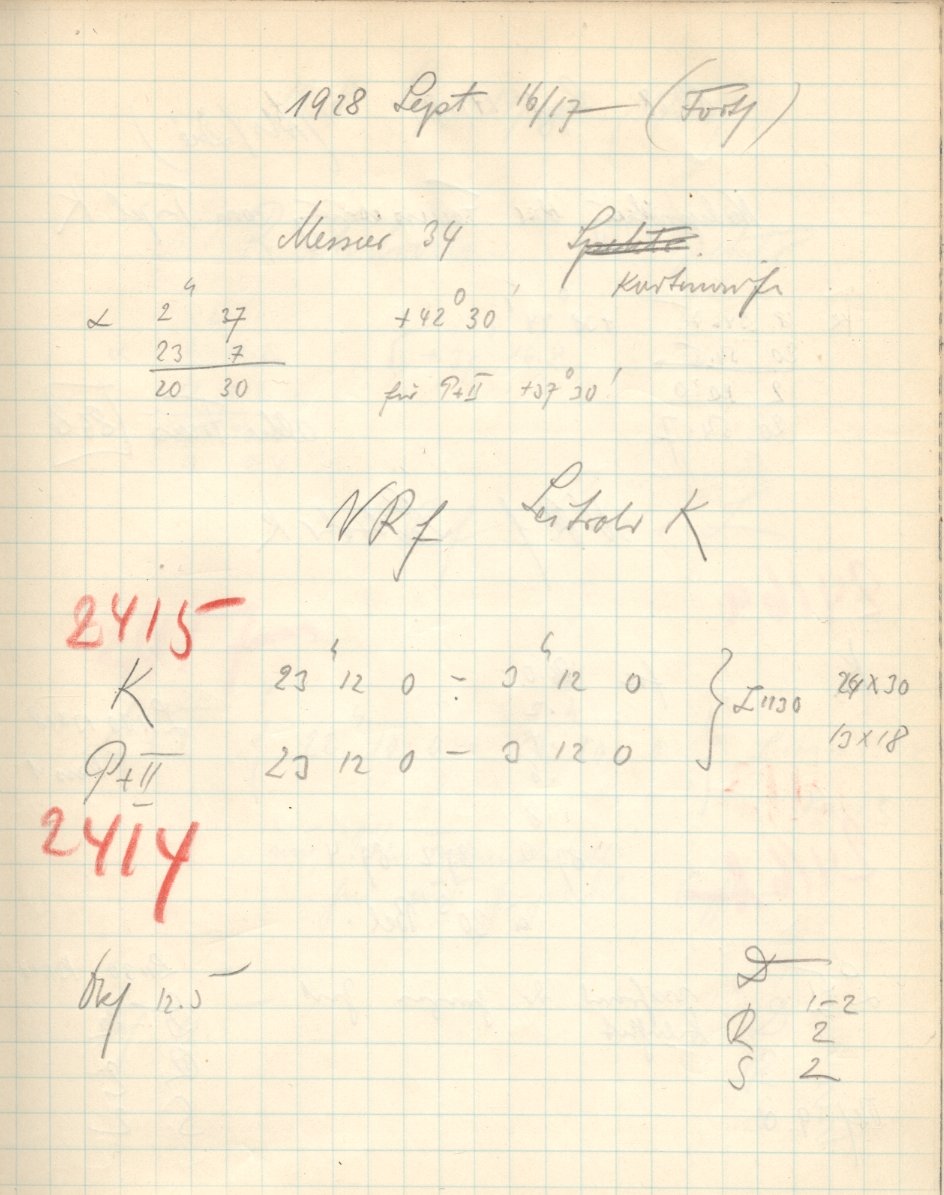 1928 Sept 16/17 (Forts)
Messier 34 Spektr.
Kartenaufn
α 2ʰ 37 +42° 30'
23 7
20 30 für P+II +37° 30'
NRf Leitrohr K
2415
K 23ʰ 12 0 - 3ʰ 12 0 24×30
P+II 23 12 0 - 3 12 0 13×18
2414
12.5
D 1-2
R 2
S 2